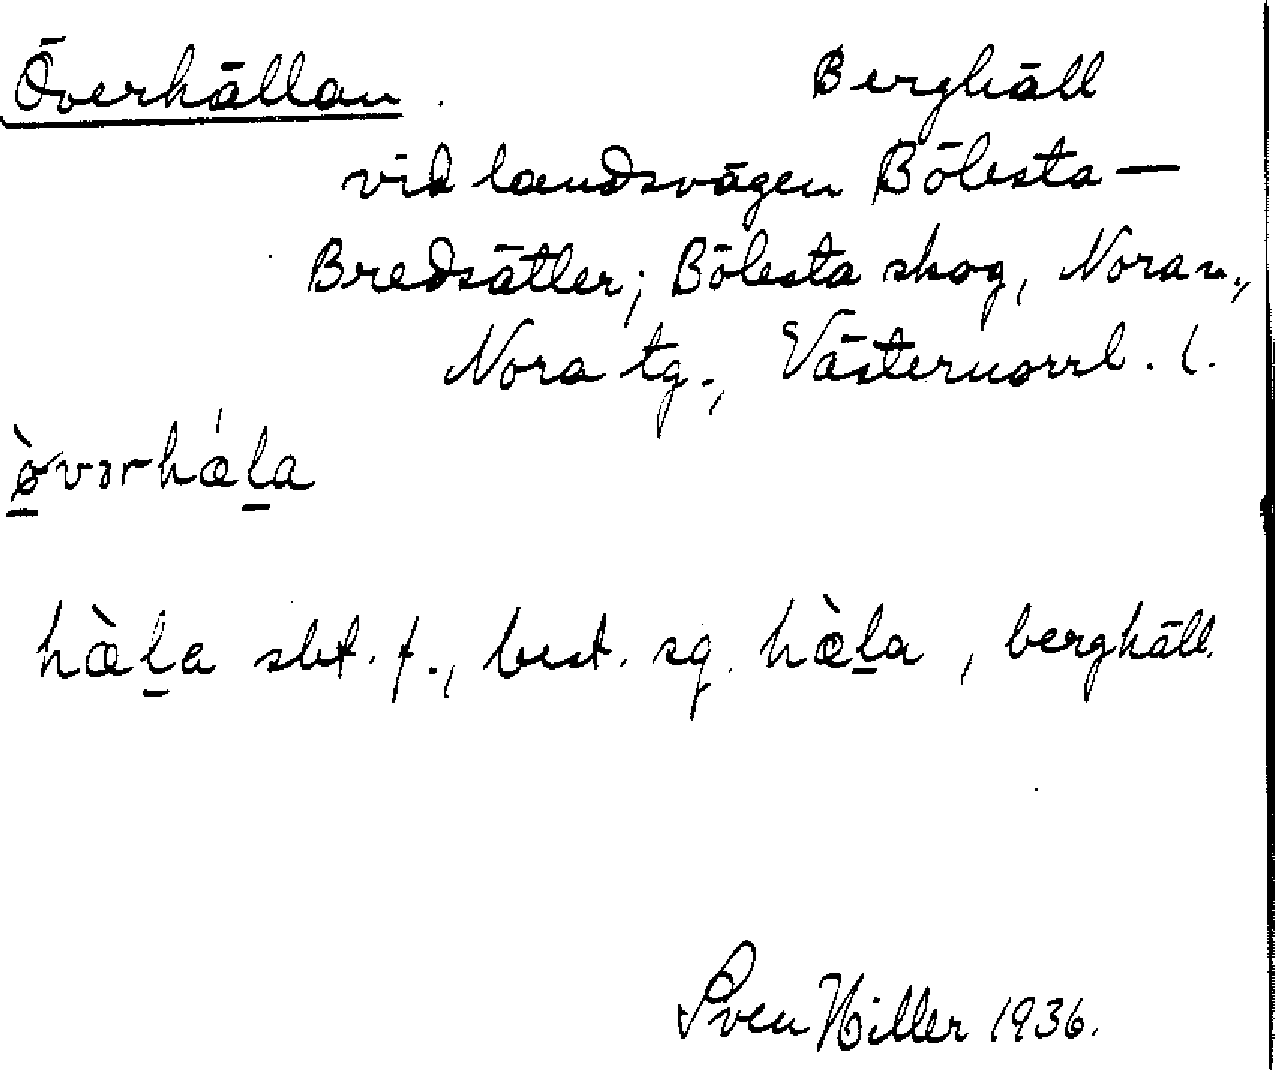 Överhällan. Berghäll
vid landsvägen Bölesta—
Bredsätter; Bölesta skog, Nora sn.,
Nora tg., Västernorrl. l.
ø̀vərhǽl̠a
hæ̀l̠a sbt. f., best. sg. hæ̀l̠a, berghäll.
Sven Hiller 1936.